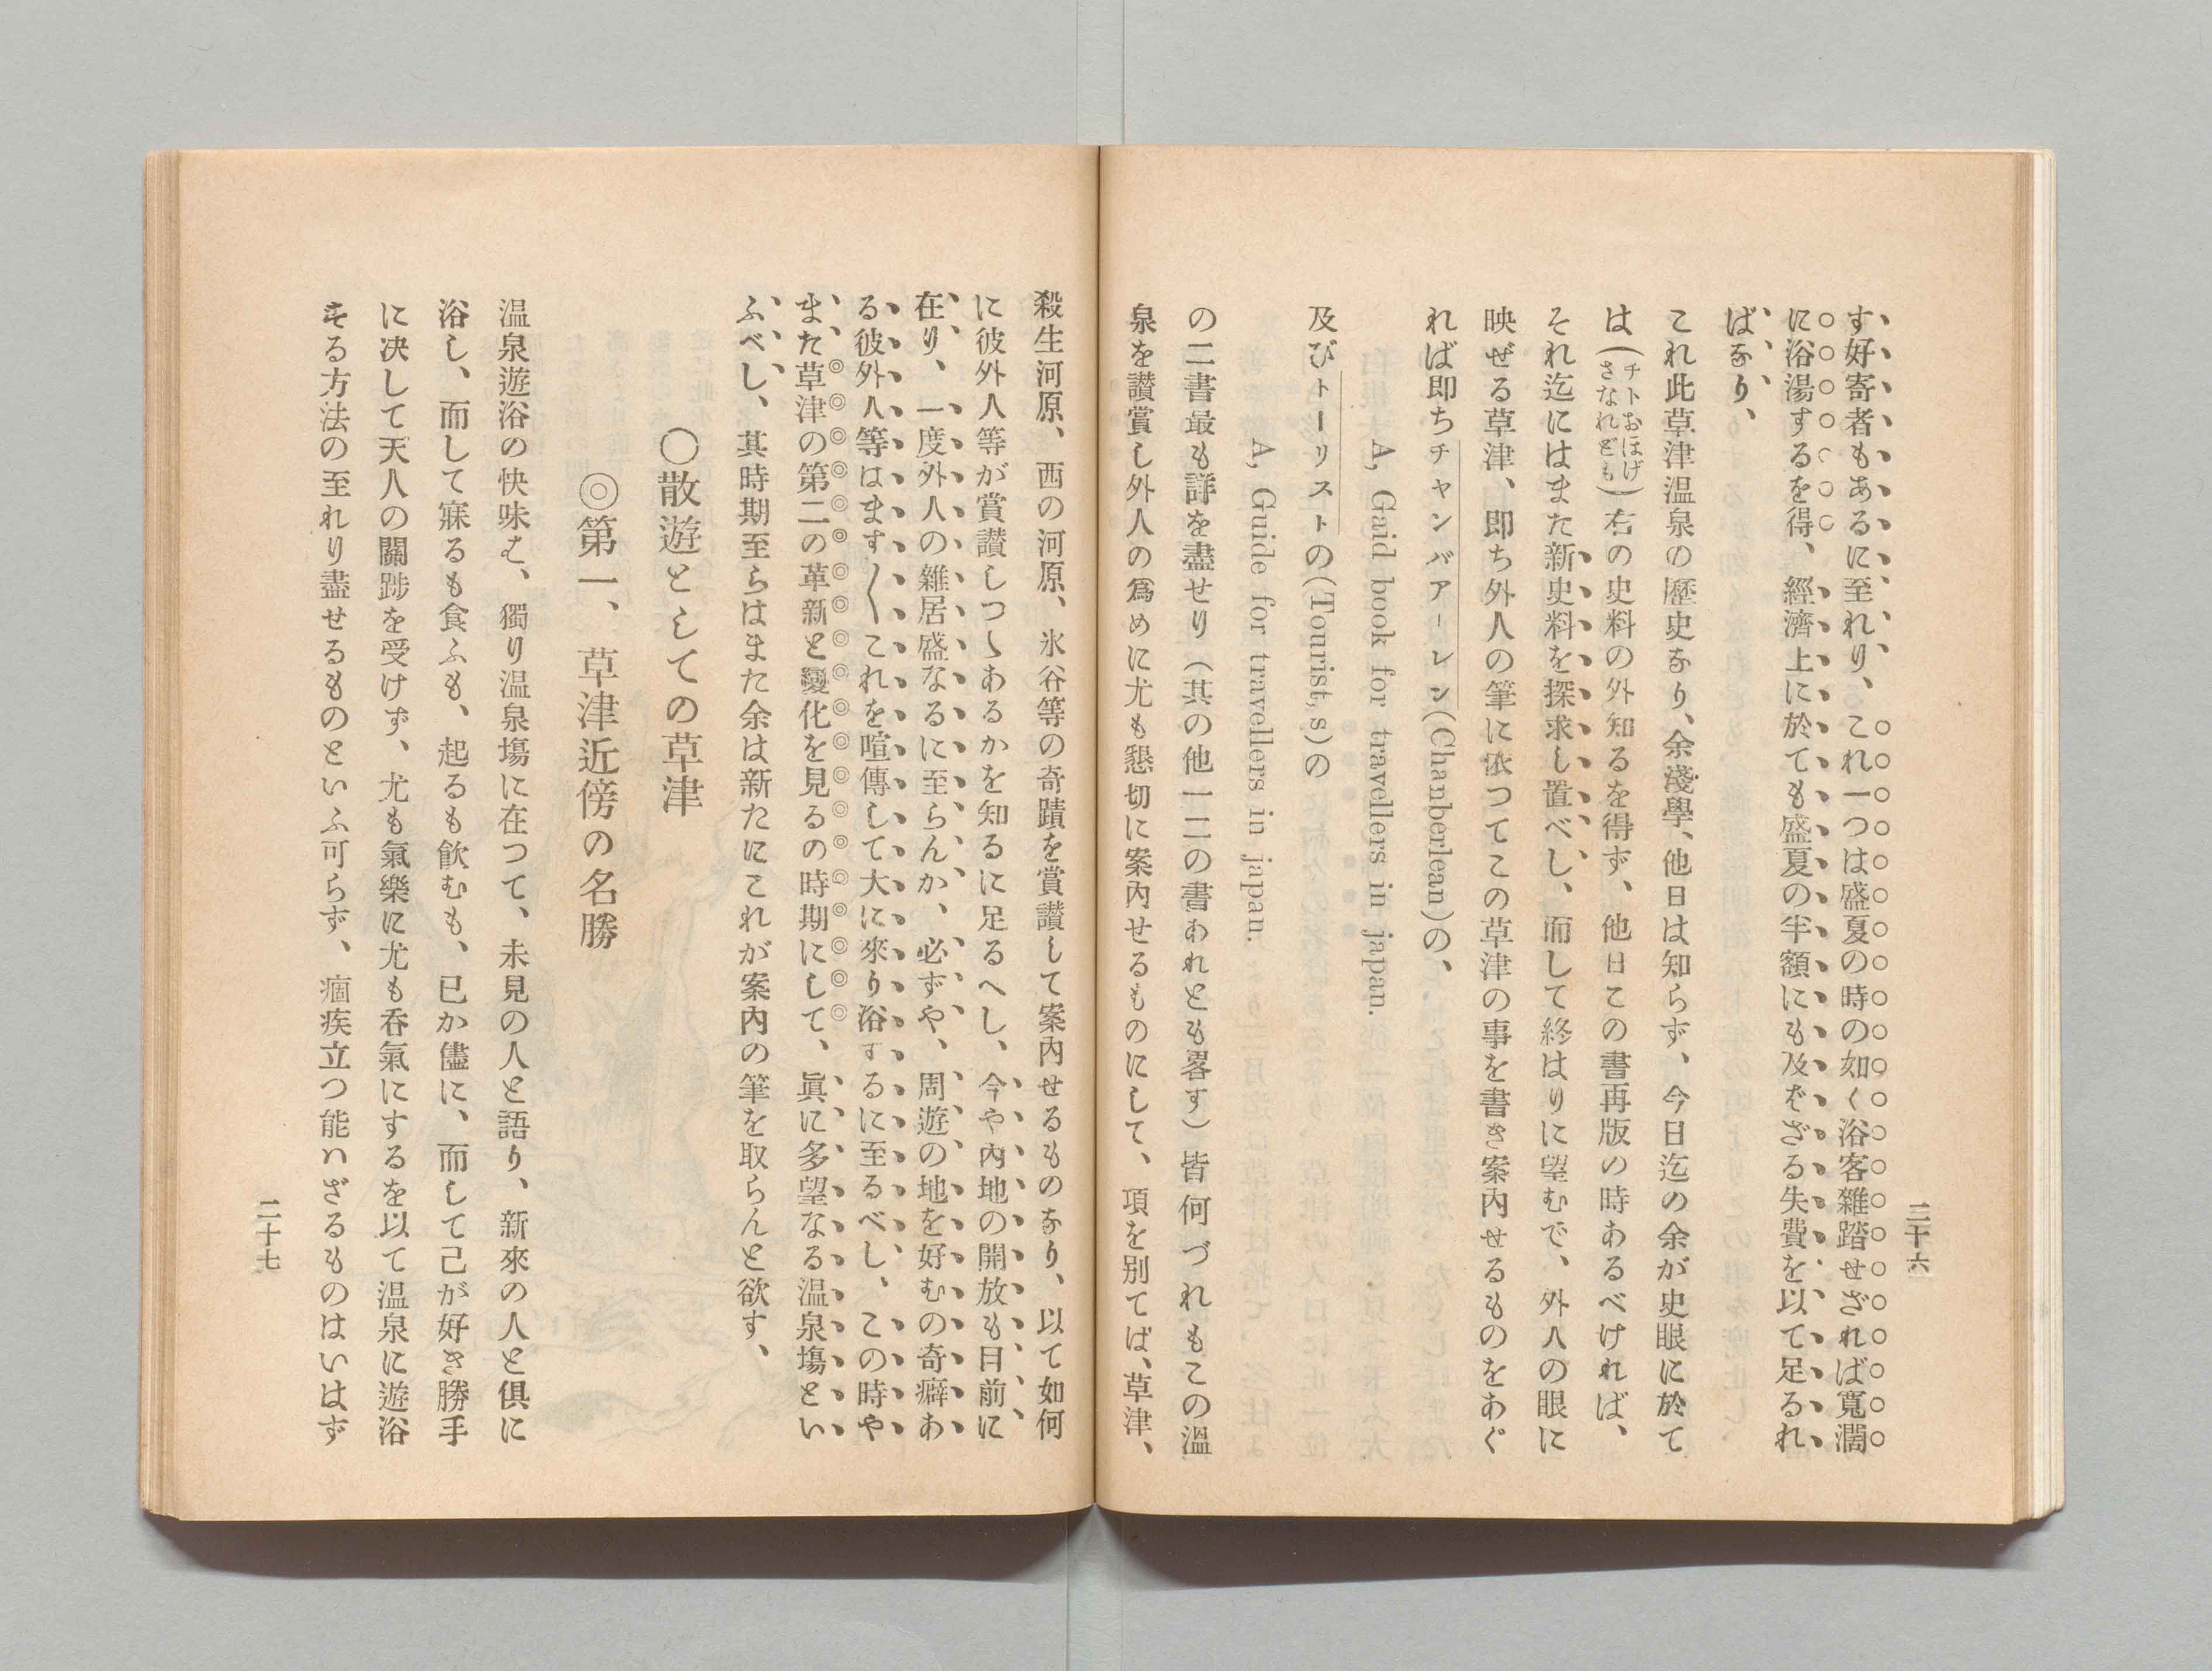 二十六
す好寄者もあるに至れり、これ一つは盛夏の時の如く浴客雜踏せざれば寬濶
に浴湯するを得、經濟上に於ても盛夏の半額にも及をざる失費を以て足るれ
ばなり、
これ此草津温泉の歷史なり、余淺學、他日は知らず、今日迄の余が史眼に於て
は(チトおほげさなれども)右の史料の外知るを得ず、他日この書再版の時あるべければ、
それ迄にはまた新史料を探求し置べし、而して終はりに望むで、外人の眼に
映ぜる草津、即ち外人の筆に依つてこの草津の事を書き案內せるものをあぐ
れば即ちチャンバアーレン(Chanberlean)の、
A, Gaid book for travellers in japan.
及びトーリストの(Tourist, s)の
A, Guide for travellers in japan.
の二書最も詳を盡せり(其の他一二の書あれとも畧す)皆何づれもこの溫
泉を讃賞し外人の爲めに尤も懇切に案內せるものにして、項を別てば、草津、
殺生河原、西の河原、氷谷等の奇蹟を賞讃して案內せるものなり、以て如何
に彼外人等が賞讃しつゝあるかを知るに足るへし、今や內地の開放も目前に
在り、一度外人の雜居盛なるに至らんか、必ずや、周遊の地を好むの奇癖あ
る彼外人等はます〳〵これを喧傳して大に來り浴するに至るべし、この時や
また草津の第二の革新と變化を見るの時期にして、眞に多望なる温泉塲とい
ふべし、其時期至らはまた余は新たにこれが案內の筆を取らんと欲す、
〇散遊としての草津
◎第一、草津近傍の名勝
温泉遊浴の快味む、獨り温泉塲に在つて、未見の人と語り、新來の人と俱に
浴し、而して寐るも食ふも、起るも飮むも、已か儘に、而して己が好き勝手
に决して天人の關踄を受けず、尤も氣樂に尤も呑氣にするを以て温泉に遊浴
する方法の至れり盡せるものといふ可らず、痼疾立つ能ハざるものはいはず
二十七